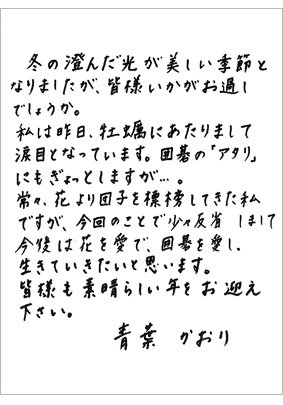 冬の澄んだ光が美しい季節と
なりましたが、皆様いかがお過し
でしょうか。
私は昨日、牡蠣にあたりまして
涙目となっています。囲碁の「アタリ」
にもぎょっとしますが…。
常々、花より団子を標榜してきた私
ですが、今回のことで少々反省しまして
今後は花を愛で、囲碁を愛し
生きていきたいと思います。
皆様も素晴らしい年をお迎え
下さい。
青葉 かおり